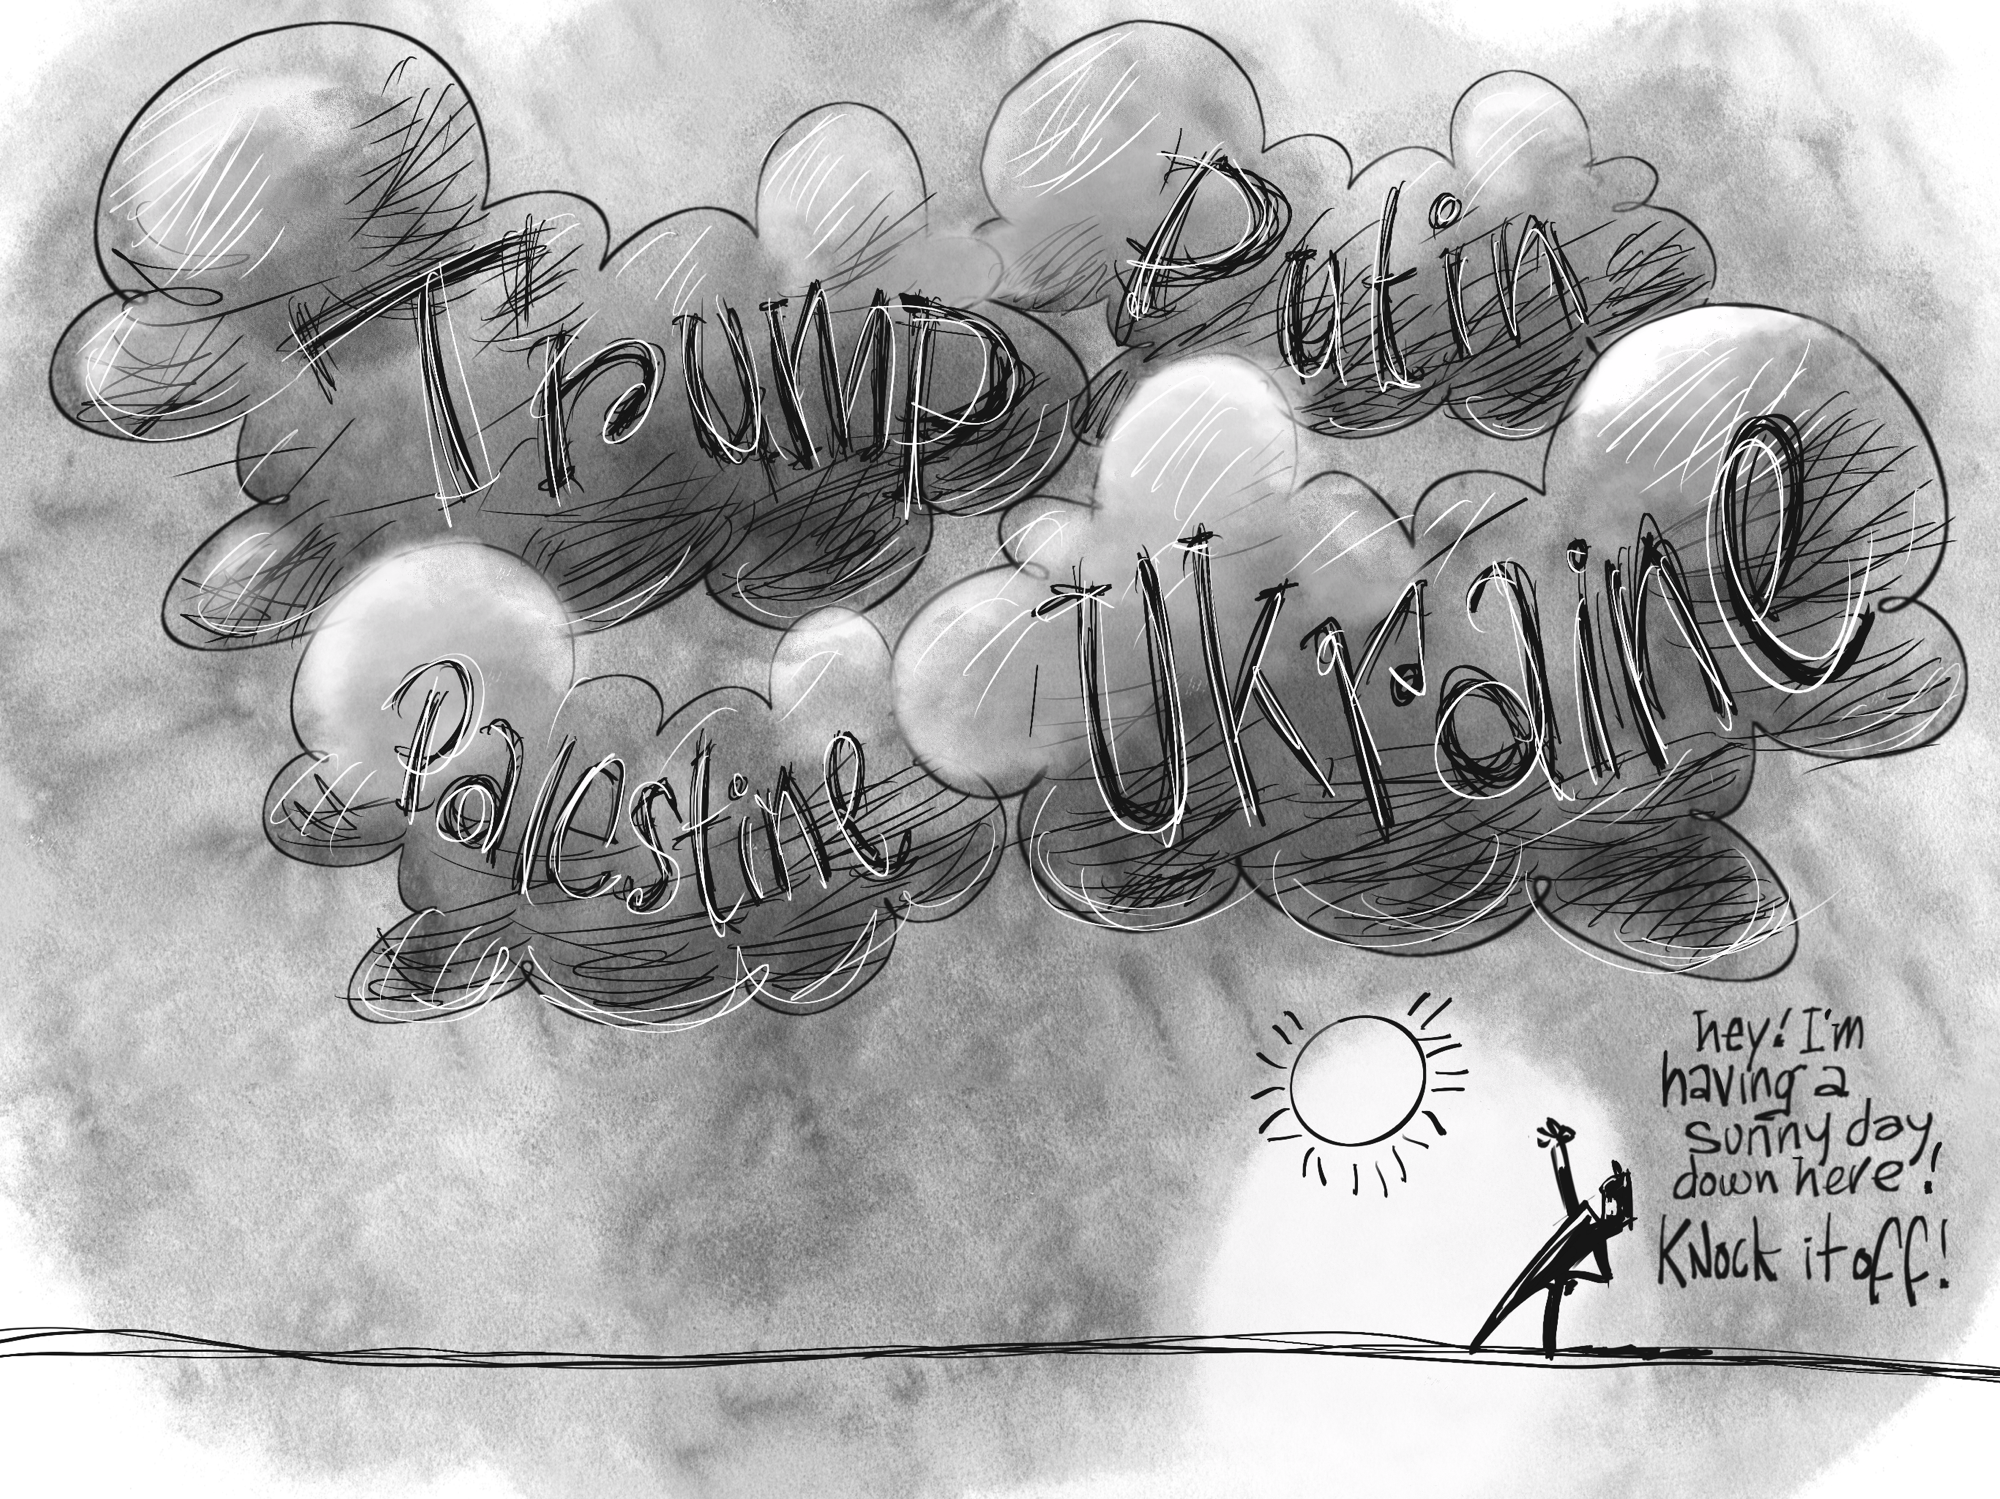 Trump
Putin
Palestine
Ukraine
hey! I'm
having a
sunny day
down here!
Knock it off!